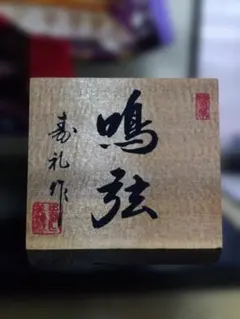 鳴弦
寿礼作